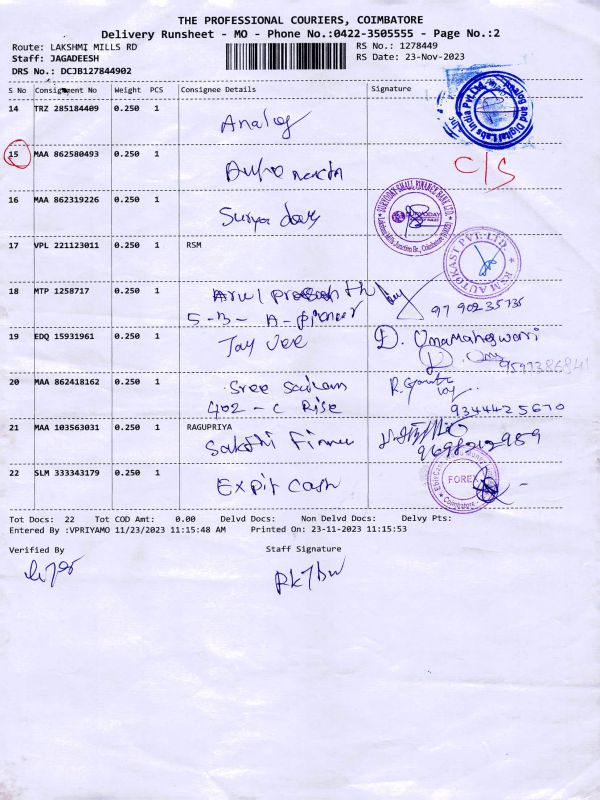 THE PROFESSIONAL COURIERS, COIMBATORE
Delivery Runsheet - MO - Phone No.:0422-3505555 - Page No.:2
Route: LAKSHMI MILLS RD
RS No.: 1278449
Staff: JAGADEESH
RS Date: 23-Nov-2023
DRS No.: DCJB127844902
S No Consignment No Weight PCS Consignee Details Signature
14 TRZ 285184409 0.250 1 Analog
Analog and Digital Labs India Pvt.Ltd.
15 MAA 862580493 0.250 1
C/S
16 MAA 862319226 0.250 1 Surya
SURYODAY SMALL FINANCE BANK LTD.
SURYODAY
17 VPL 221123011 0.250 1 RSM
RSM AUTOKAST PVT. LTD.
18 MTP 1258717 0.250 1 Arul
5-B- A- pioneer
9790235735
19 EDQ 15931961 0.250 1 Jay Vee D. Umamaheswari
20 MAA 862418162 0.250 1 Sree Sairam
402 - C Rise
9344425670
21 MAA 103563031 0.250 1 RAGUPRIYA
Sakthi Finance
9698212989
22 SLM 333343179 0.250 1 Expit Cash
FOREX
Coimbatore
Tot Docs: 22 Tot COD Amt: 0.00 Delvd Docs: Non Delvd Docs: Delvy Pts:
Entered By :VPRIYAMO 11/23/2023 11:15:48 AM Printed On: 23-11-2023 11:15:53
Verified By Staff Signature